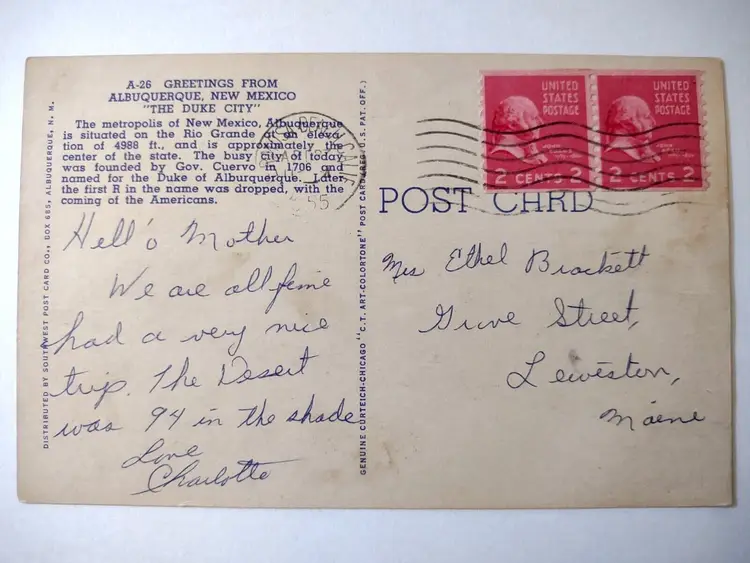 A-26 GREETINGS FROM
ALBUQUERQUE, NEW MEXICO
"THE DUKE CITY"
The metropolis of New Mexico, Albuquerque
is situated on the Rio Grande at an eleva-
tion of 4988 ft., and is approximately the
center of the state. The busy city of today
was founded by Gov. Cuervo in 1706 and
named for the Duke of Alburquerque. Later
the first R in the name was dropped, with the
coming of the Americans.
Hell'o Mother
We are all fine
had a very nice
trip. The Desert
was 94 in the shade
Love
Charlotte
DISTRIBUTED BY SOUTHWEST POST CARD CO., BOX 685, ALBUQUERQUE, N. M.
GENUINE CURTEICH-CHICAGO "C. T. ART-COLORTONE" POST CARD (REG. U.S. PAT. OFF.)
55
UNITED
STATES
POSTAGE
JOHN ADAMS
2 CENTS 2
UNITED
STATES
POSTAGE
JOHN ADAMS
2 CENTS 2
POST CARD
Mrs Ethel Brackett
Street,
Lewiston,
Maine